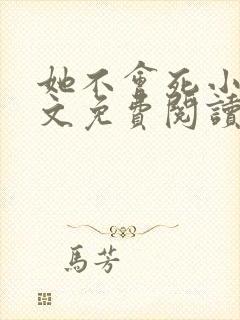 她不會死小
文免費閱讀
馬芳